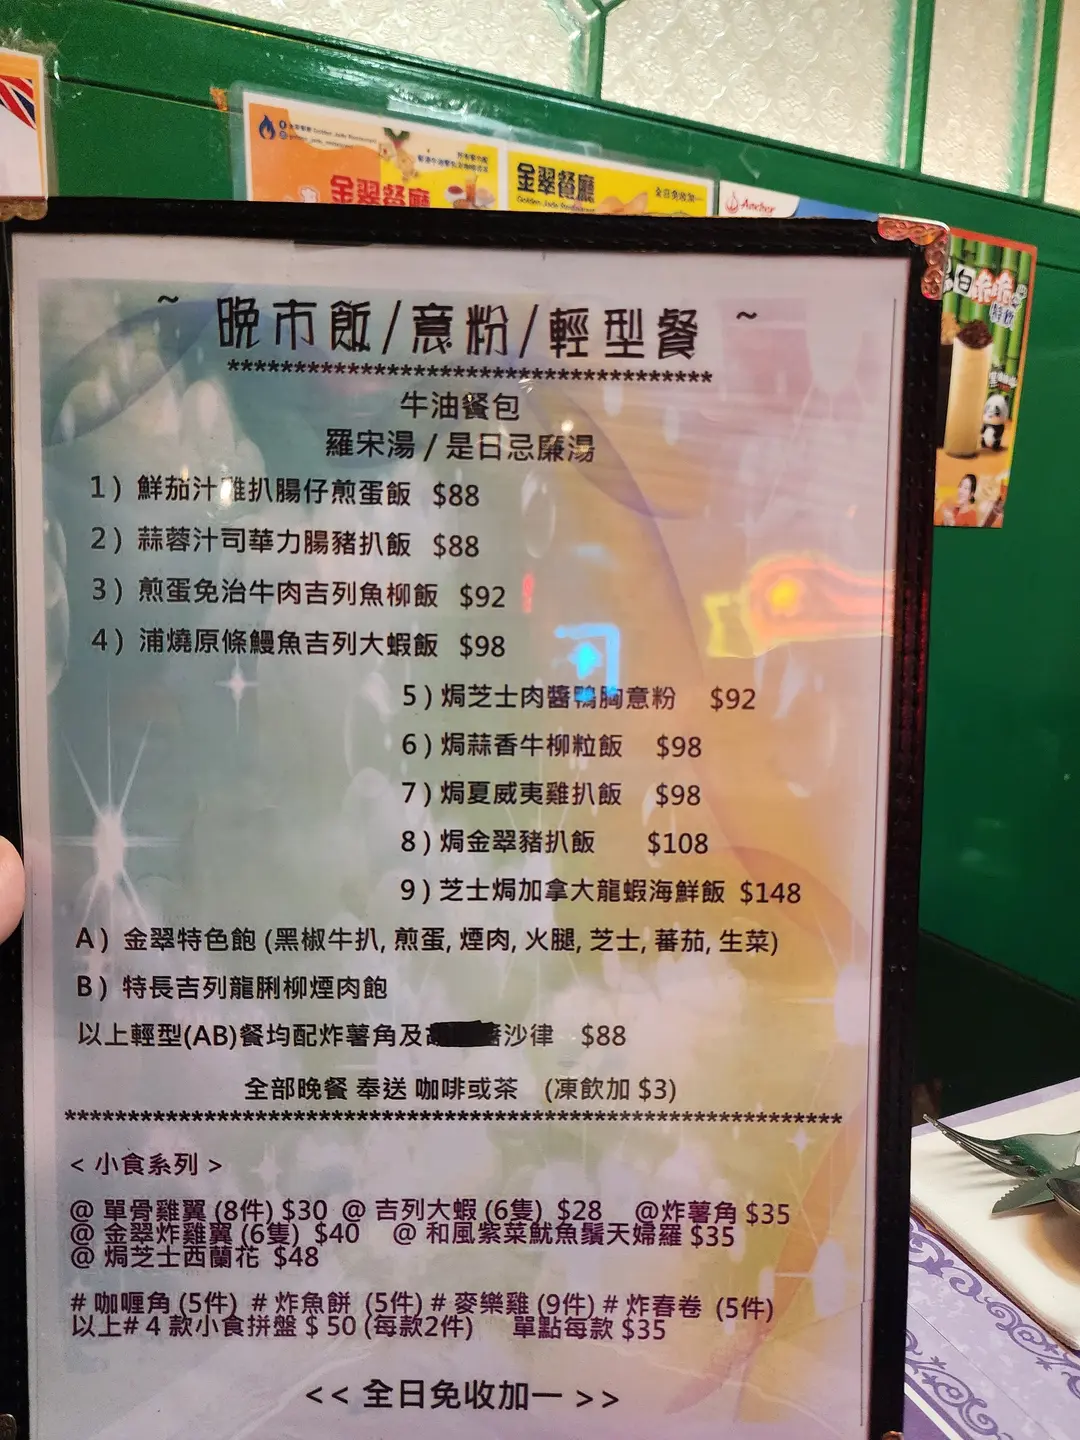 金翠餐廳 Golden Jade Restaurant
金翠餐廳
金翠餐廳
Golden Jade Restaurant
全日免收加一
Anchor
~ 晚市飯/意粉/輕型餐 ~
************************************
牛油餐包
羅宋湯 / 是日忌廉湯
1) 鮮茄汁雞扒腸仔煎蛋飯 $88
2) 蒜蓉汁司華力腸豬扒飯 $88
3) 煎蛋免治牛肉吉列魚柳飯 $92
4) 浦燒原條鰻魚吉列大蝦飯 $98
5) 焗芝士肉醬鴨胸意粉 $92
6) 焗蒜香牛柳粒飯 $98
7) 焗夏威夷雞扒飯 $98
8) 焗金翠豬扒飯 $108
9) 芝士焗加拿大龍蝦海鮮飯 $148
A) 金翠特色飽 (黑椒牛扒, 煎蛋, 煙肉, 火腿, 芝士, 蕃茄, 生菜)
B) 特長吉列龍脷柳煙肉飽
以上輕型(AB)餐均配炸薯角及沙律 $88
全部晚餐 奉送 咖啡或茶 (凍飲加 $3)
****************************************************************
< 小食系列 >
@ 單骨雞翼 (8件) $30 @ 吉列大蝦 (6隻) $28 @炸薯角 $35
@ 金翠炸雞翼 (6隻) $40 @ 和風紫菜魷魚鬚天婦羅 $35
@ 焗芝士西蘭花 $48
# 咖喱角 (5件) # 炸魚餅 (5件) # 麥樂雞 (9件) # 炸春卷 (5件)
以上# 4 款小食拼盤 $ 50 (每款2件) 單點每款 $35
<< 全日免收加一 >>